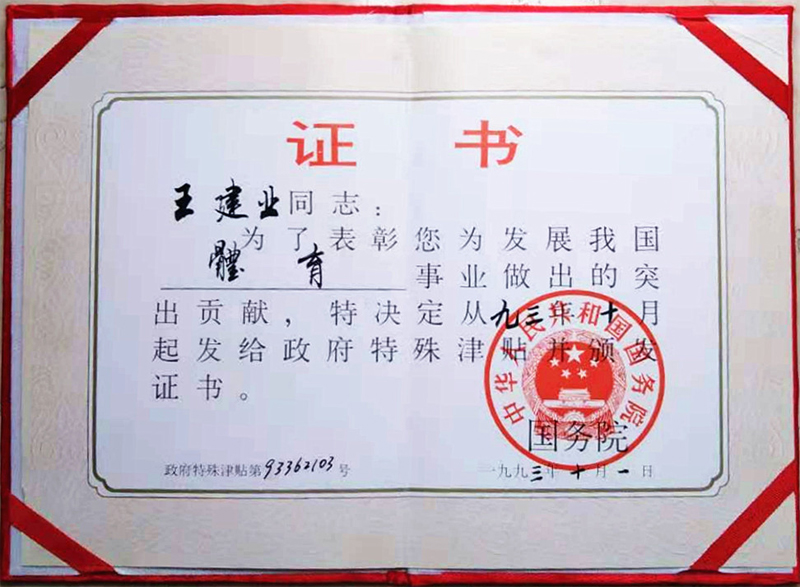 证书
王建业同志：
为了表彰您为发展我国
體育事业做出的突
出贡献，特决定从九三年十月
起发给政府特殊津贴并颁发
证书。
中华人民共和国国务院
国务院
政府特殊津贴第93362103号
一九九三年十月一日